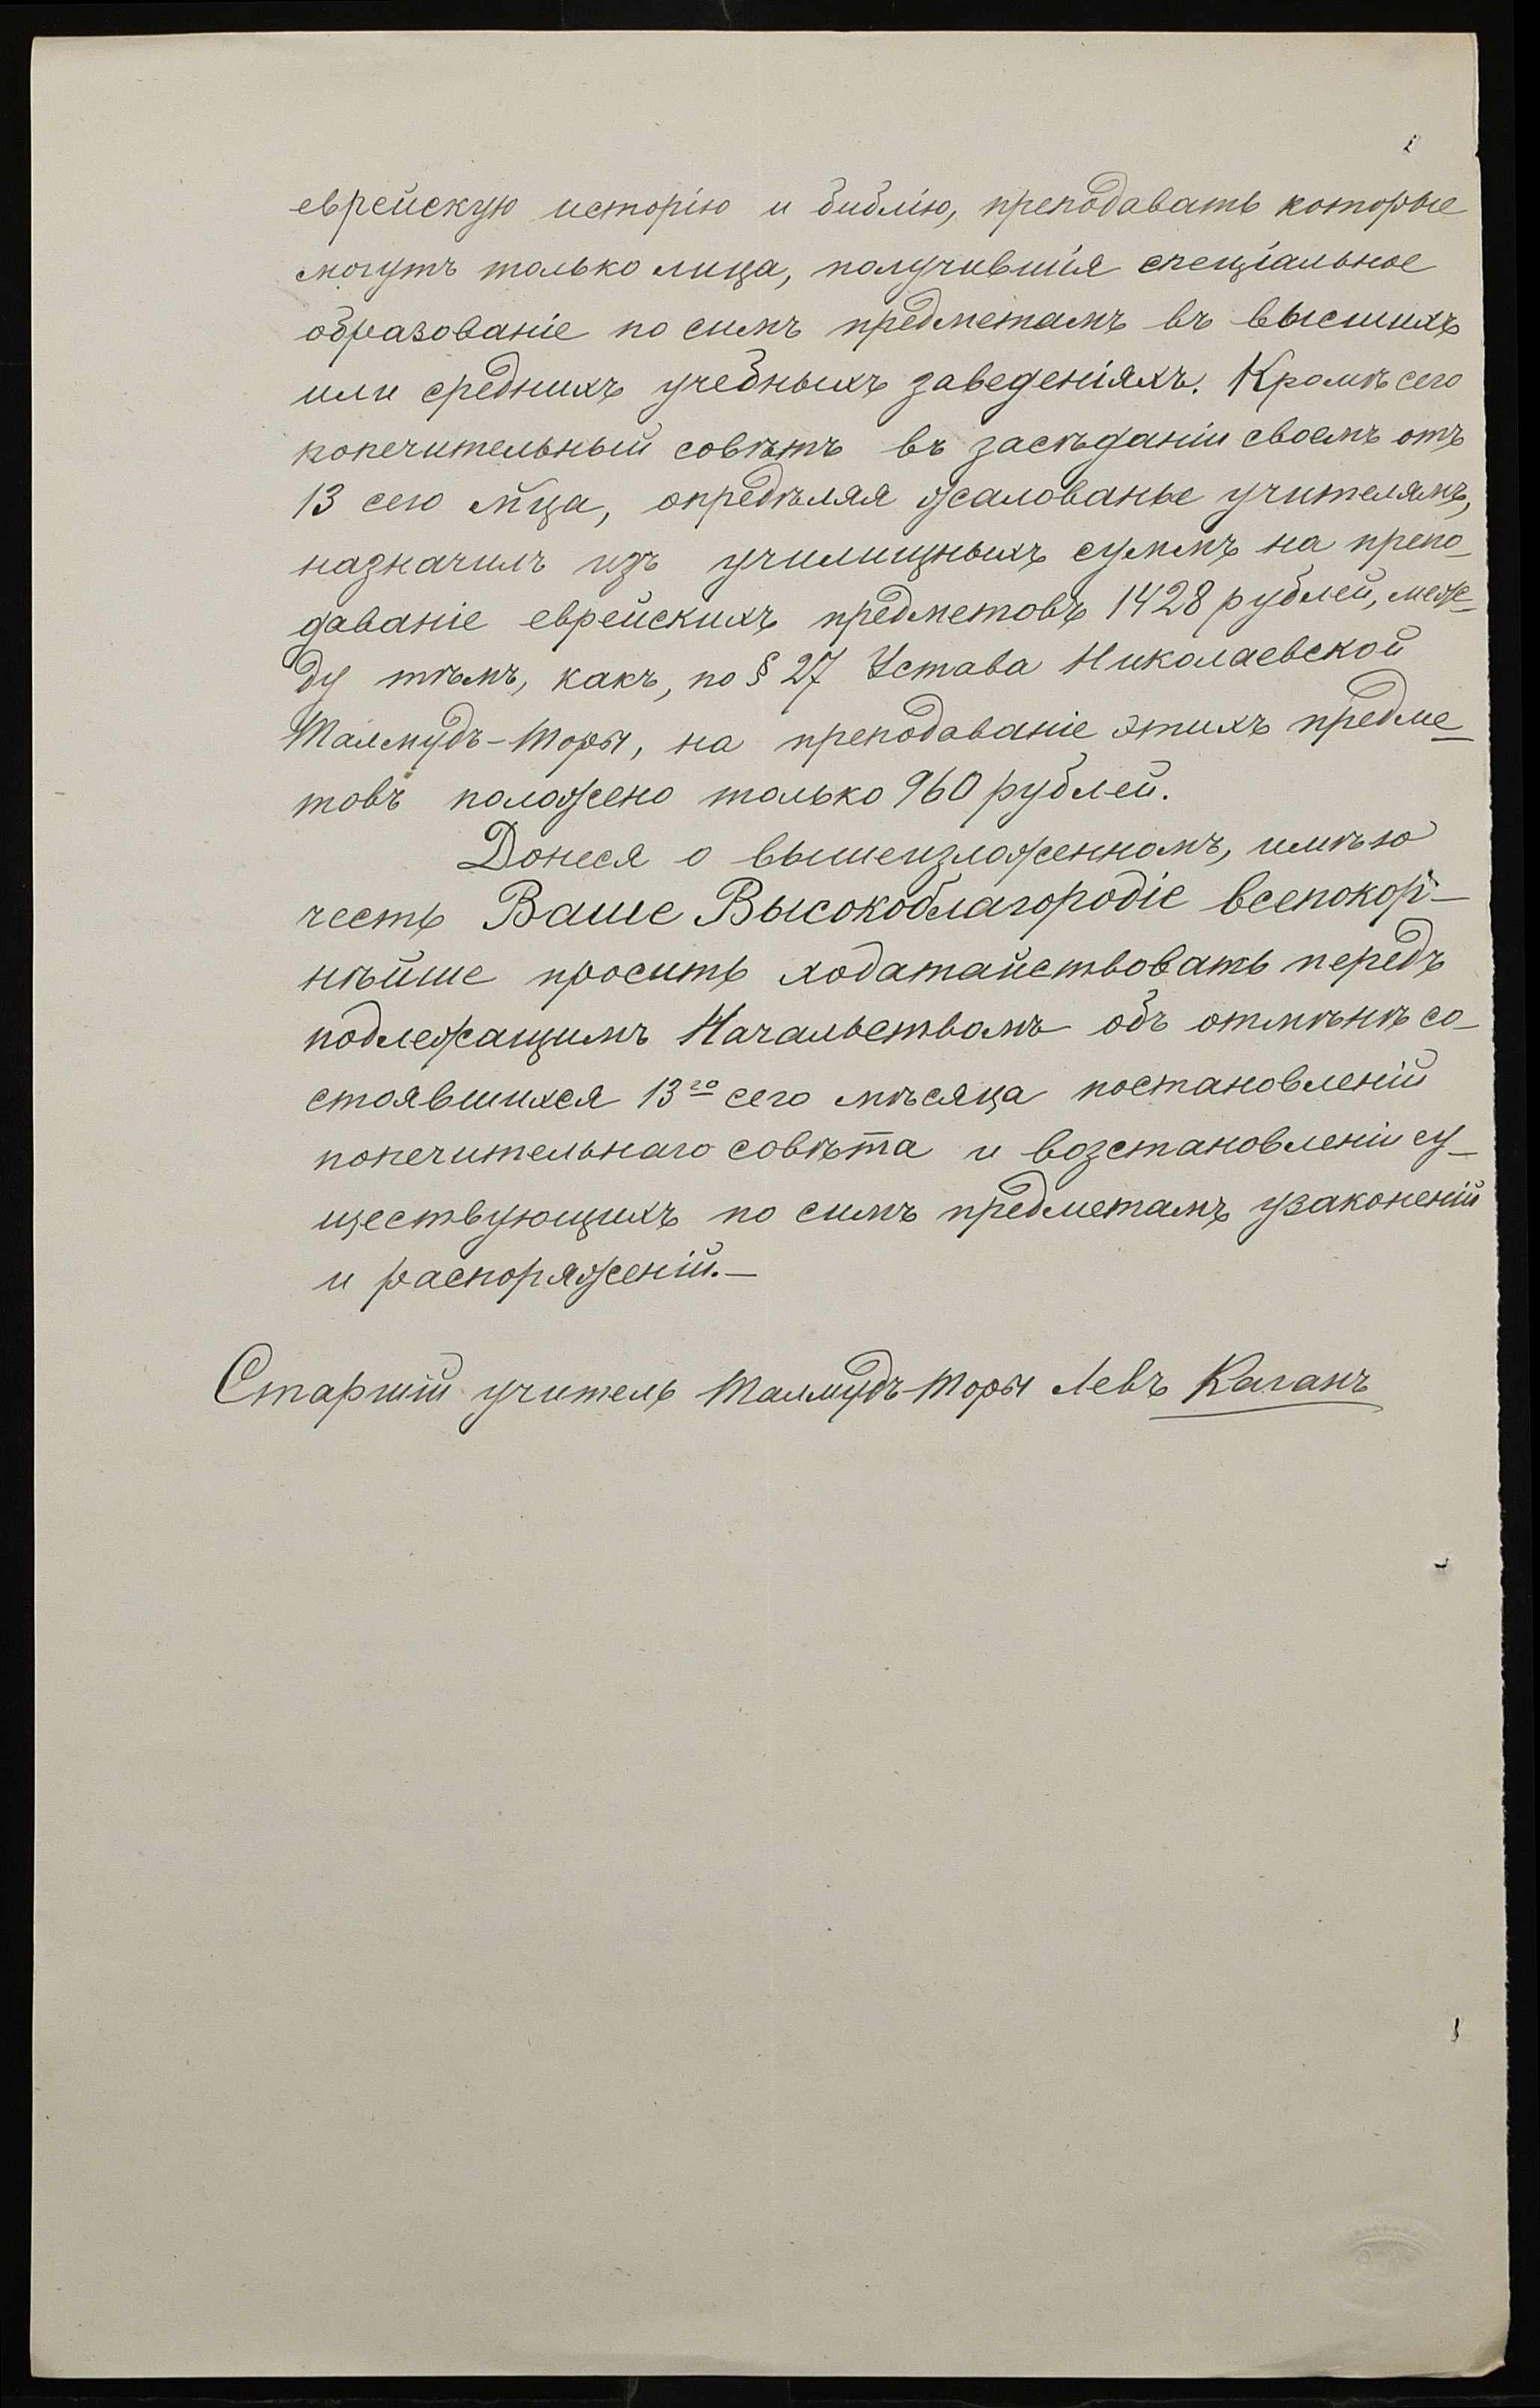 еврейскую исторію и библію, преподавать которые
могутъ только лица, получившія спеціальное
образованіе по симъ предметамъ въ высшихъ
или среднихъ учебныхъ заведеніяхъ. Кромѣ сего
попечительный совѣтъ въ засѣданіи своемъ отъ
13 сего м̃ца, опредѣляя жалованье учителямъ,
назначилъ изъ училищныхъ суммъ на препо-
даваніе еврейскихъ предметовъ 1428 рублей, меж-
ду тѣмъ, какъ, по § 27 Устава Николаевской
Талмудъ-Торы, на преподаваніе этихъ предме-
товъ положено только 960 рублей.
Донеся о вышеизложенномъ, имѣю
честь Ваше Высокоблагородіе всепокор-
нѣйше просить ходатайствовать передъ
подлежащимъ Начальствомъ объ отмѣнѣ со-
стоявшихся 13го сего мѣсяца постановленій
попечительнаго совѣта и возстановленіи су-
ществующихъ по симъ предметамъ узаконеній
и распоряженій.—
Старшій учитель Талмудъ-Торы Левъ Каганъ